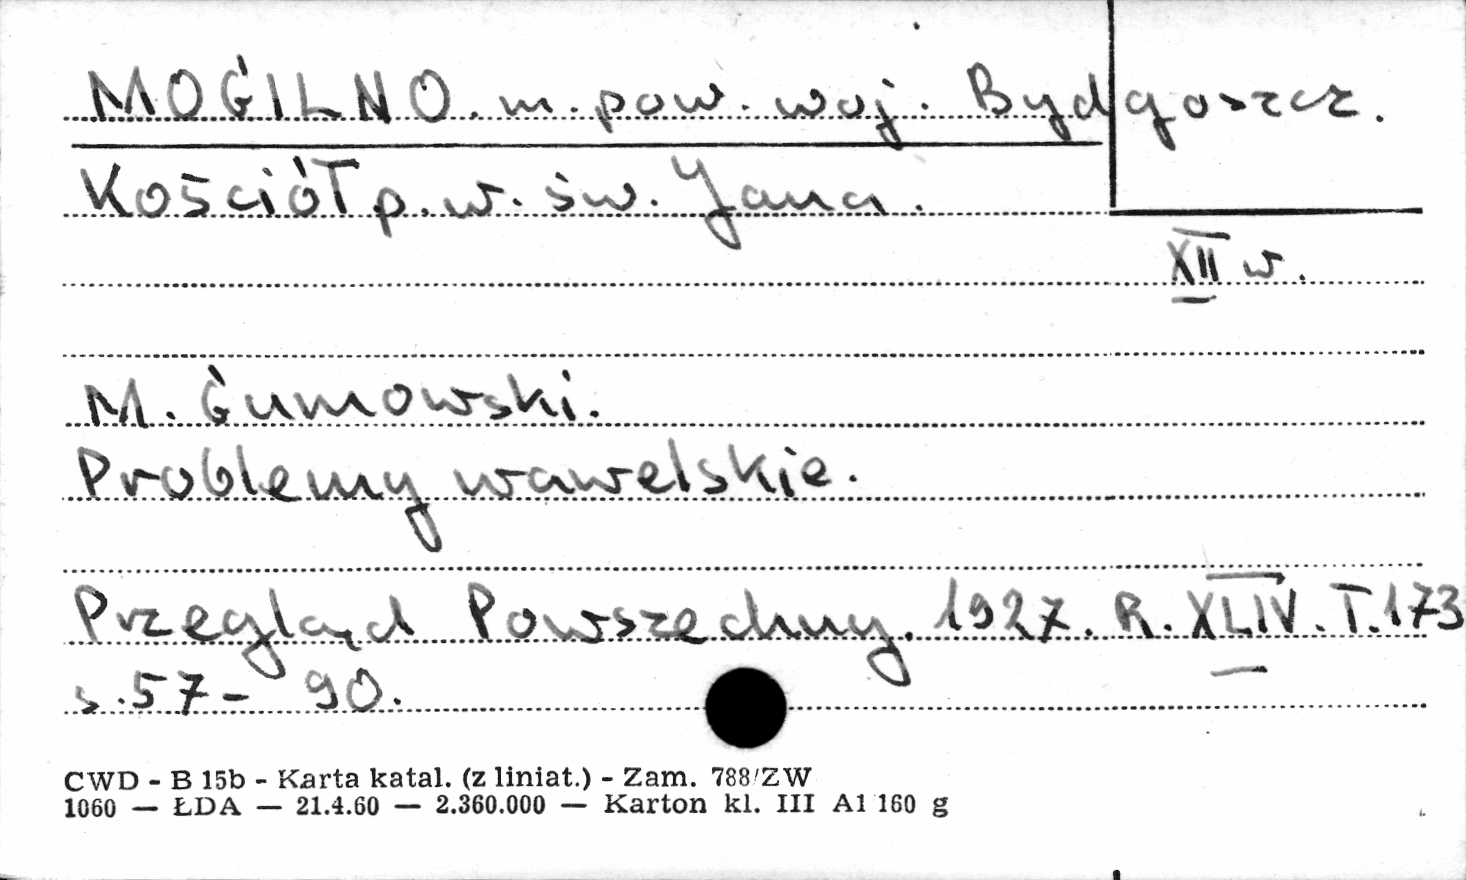 MOGILNO. m. pow. woj. Bydgoszcz.
Kościół p.w. św. Jana.
XII w.
M. Gumowski.
Problemy wawelskie.
Przegląd Powszechny. 1927. R. XLIV. T. 173
s. 57 - 90.
CWD - B 15b - Karta katal. (z liniat.) - Zam. 788/ZW
1060 — ŁDA — 21.4.60 — 2.360.000 — Karton kl. III A1 160 g